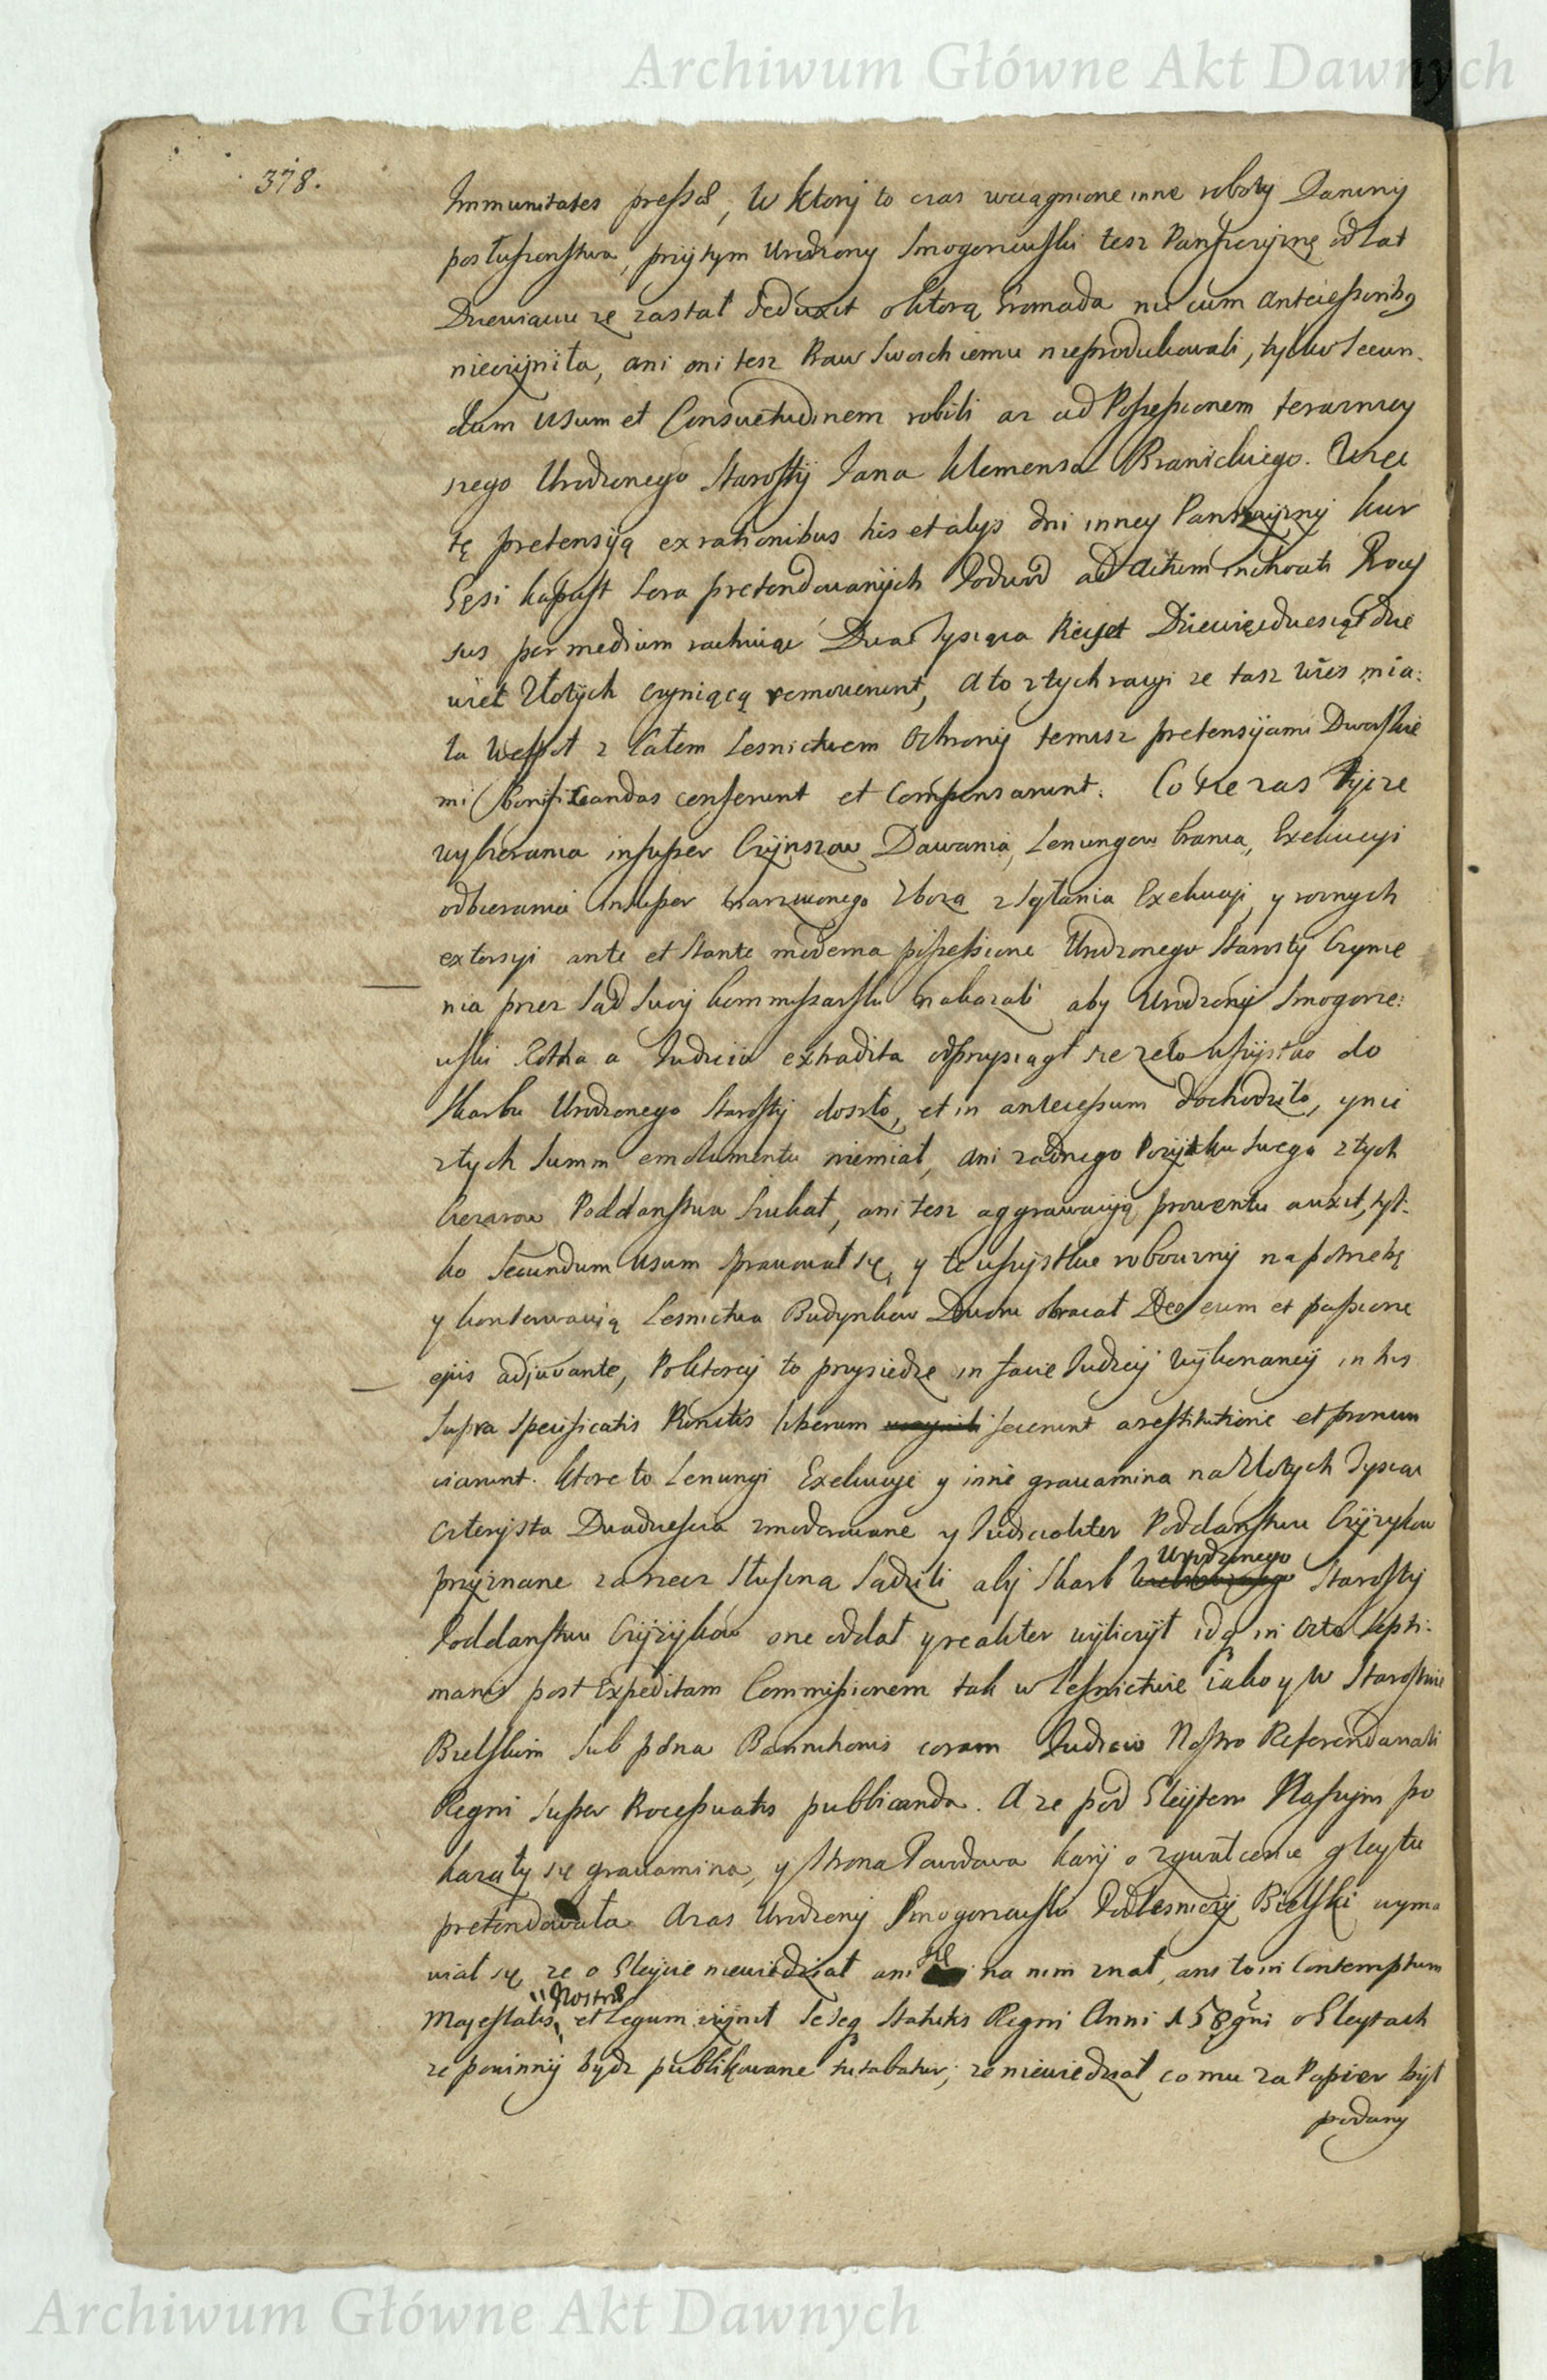 Archiwum Główne Akt Dawnych
378.
Immunitates pressos, w ktory to czas wciągnione inne roboty Daniny
posłuszenstwa, przytym Urodzony Smogorzewski tesz Panszczyznę od lat
Dziewiąciu ze zastał deduxit o ktorą Gromada nic cum antecessoribus
nieczyniła, ani oni tesz Praw Swoich iemu nieprodukowali, tylko secun-
dum usum et Consuetudinem robili az ad Possessionem terazniey
szego Urodzonego Starosty Jana Klemensa Branickiego. Więc
tę pretensyą ex rationibus his et alys dni inney Panszczyzny kur
Gęsi kapust Sera pretendowanych Podwod ad actum inchoati Proces
sus per medium rachuiąc Dwa Tysiąca Pięset Dziewiędziesiąt Dzie
więć Złotych czyniącą removerunt, a to z tych racyi ze tasz wies mia:
ła wespoł z całem Lesnictwem Ochrony temisz pretensyami Dworskie
mi bonificandas censerunt et Compensarunt. Co się zas tycze
wybierania insuper Czynszow Dawania, Lenungow brania, Exekucyi
odbierania insuper zboza zsyłania Exekucyi, y roznych
extorsyi ante et stante moderna possessione Urodzonego Starosty Czynie
nia przez Sąd Swoy kommissarski nakazali aby Urodzony Smogorze:
wski Rotha a Judicio extradita odprzysiągł ze to wszystko do
Skarbu Urodzonego Starosty doszło, et in antecessum dochodziło, y nic
z tych Summ emolumentu niemiał, ani zadnego Pozytku swego z tych
Cięzarow Poddanstwa Szukał, ani tesz aggrawacyą prowentu auxit, tyl-
ko secundum usum sprawował się, y te wszystkie robocizny na potrzebę
y konserwacyą Lesnictwa Budynkow Dworu obracał Deo eum et passione
ejus adjuvante, Po ktorey to przysiędze in facie Judicij wykonaney in his
supra specificatis Punctis liberum fecerunt a restitutione et pronun
ciarunt. Ktore to Lenungi Exekucye y inne gravamina na Złotych Tysiąc
Czterysta Dwadziescia zmoderowane y Judicialiter Poddanstwu Czyzykow
przyznane za rzecz Słuszna Sądzili aby Skarb Urodzonego Starosty
Poddanstwu Czyzykow one oddał y realiter wyliczył idque in octo septi-
manis post Expeditam Commissionem tak w Lesnictwie iako y w Starostwie
Bielskim sub pœna Bannitionis coram Judicio Nostro Referendariali
Regni super Processuatis publicanda. A ze pod Gleytem Naszym po
kazały się gravamina, y strona Powodowa kary o zgwałcenie gleytu
pretendowała. A zas Urodzony Smogorzewski Podlesniczy Bielski wyma
wiał się ze o Gleycie niewiedział ani się na nim znał, ans to in Contemptum
Majestatis Nostræ et Legum czynił sese Statutis Regni Anni 158 o Gleytach
ze powinny bydz publikowane tutabatur, ze niewiedział co mu za Papier był
podany
Archiwum Główne Akt Dawnych